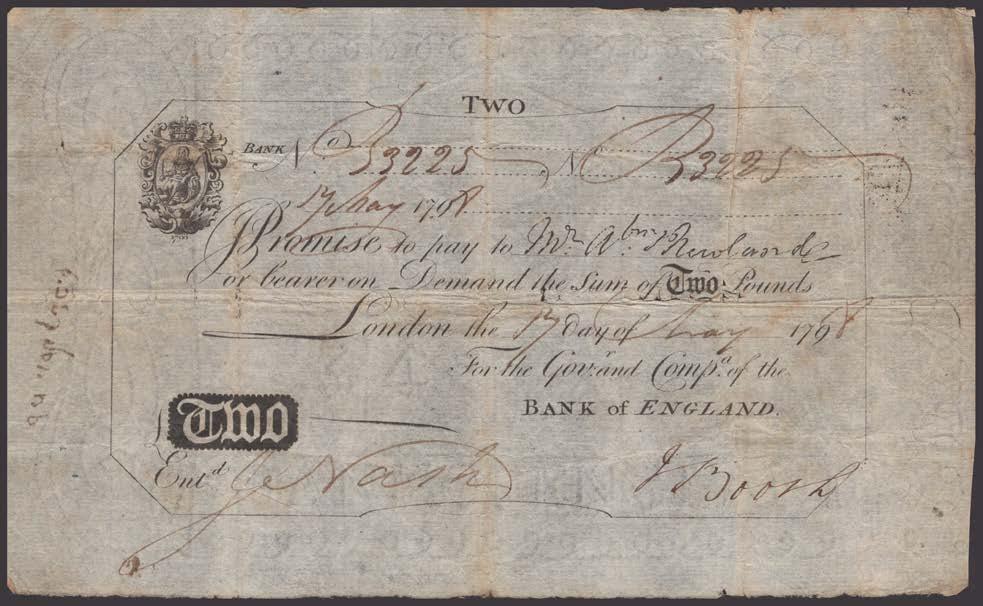 TWO
BANK No B3225 No B3225
17 May 1798
I Promise to pay to Mr. Abm. Newlands
or bearer on Demand the Sum of Two Pounds
London the 17 day of May 1798
For the Govr. and Compa. of the
BANK of ENGLAND.
£ TWO
Entd. Nash J Booth